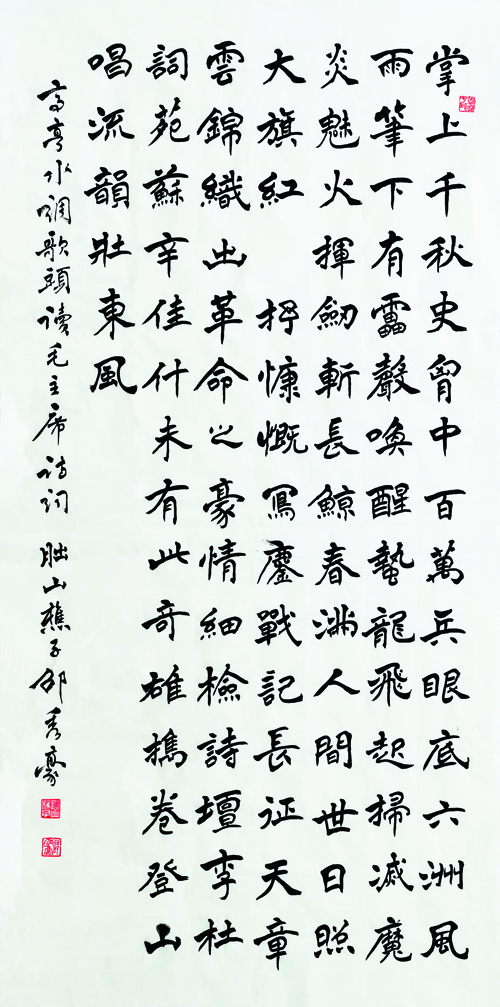 掌上千秋史胷中百萬兵眼底六洲風
雨筆下有靁聲喚醒蟄龍飛起掃滅魔
炎魅火 揮劒斬長鯨春滿人間世日照
大旗紅 抒慷慨寫鏖戰記長征天章
雲錦織出革命之豪情細檢詩壇李杜
詞苑蘇辛佳什未有此奇雄攜卷登山
唱流韻壯東風
高亨水調歌頭讀毛主席詩詞 朏山樵子邵秀豪